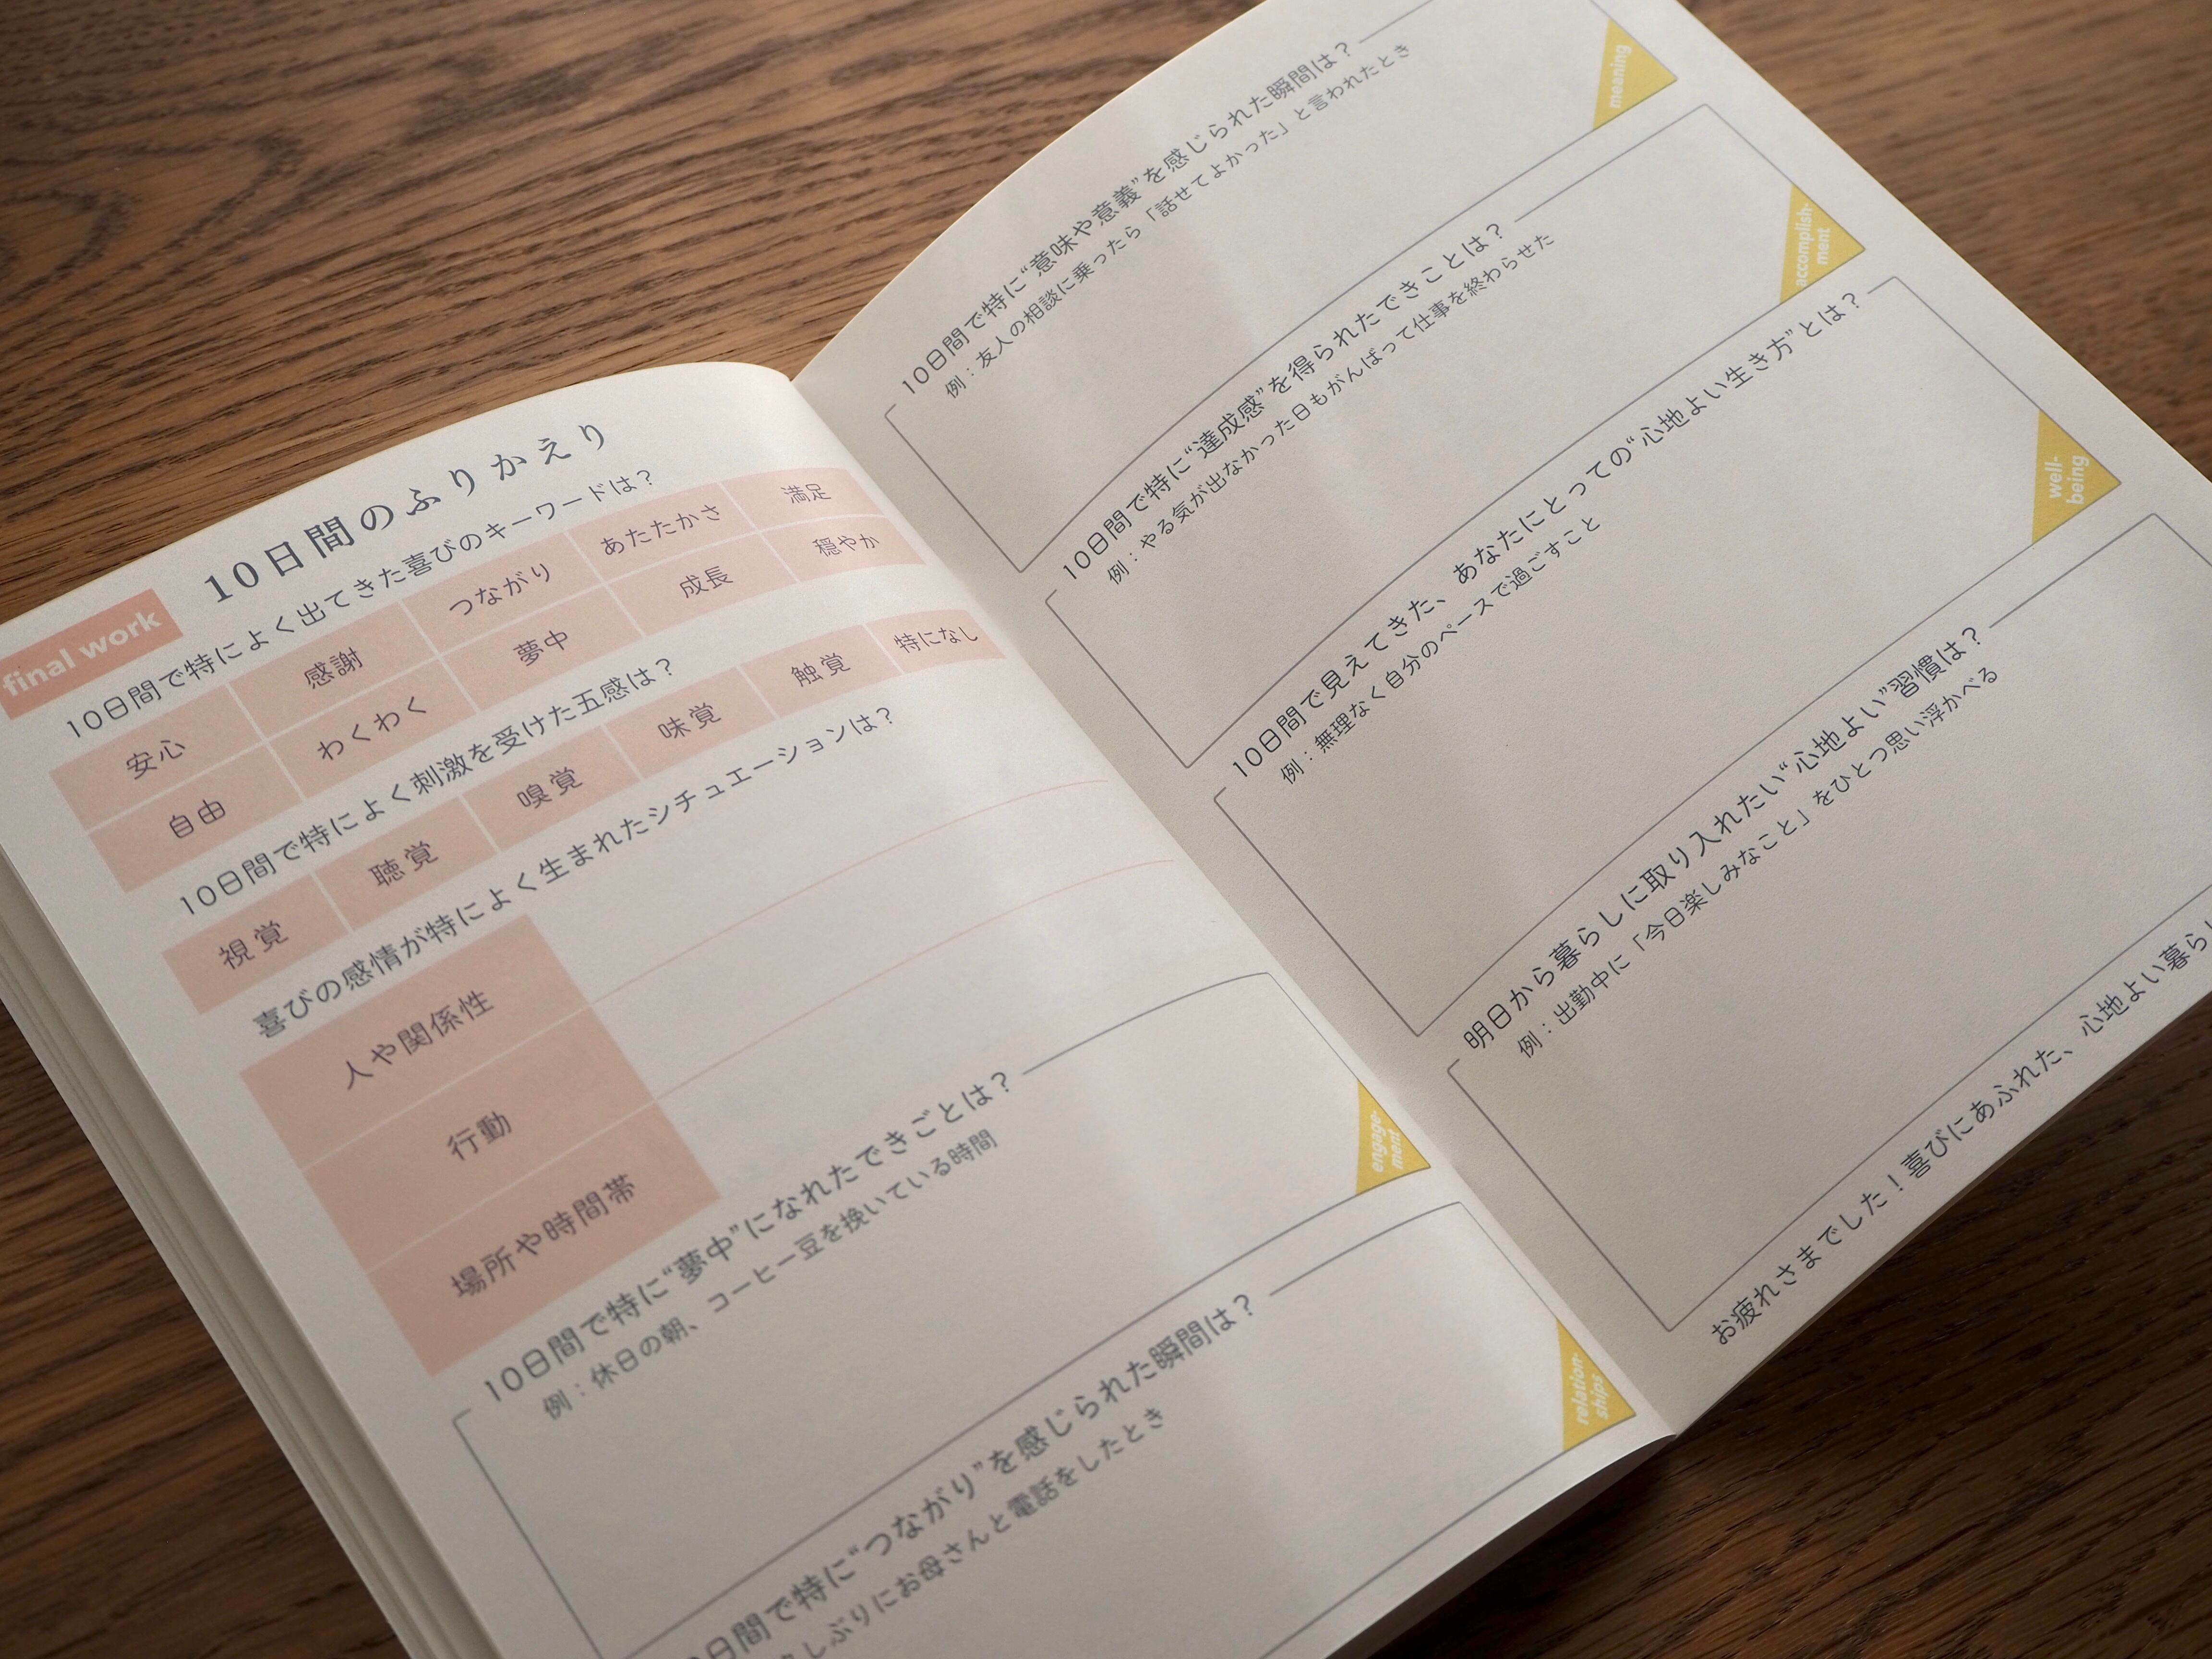 final work
10日間のふりかえり
10日間で特によく出てきた喜びのキーワードは？
安心 感謝 つながり あたたかさ 満足
自由 わくわく 夢中 成長 穏やか
10日間で特によく刺激を受けた五感は？
視覚 聴覚 嗅覚 味覚 触覚 特になし
喜びの感情が特によく生まれたシチュエーションは？
人や関係性
行動
場所や時間帯
10日間で特に“夢中”になれたできごとは？
例：休日の朝、コーヒー豆を挽いている時間
engage-
ment
日間で特に“つながり”を感じられた瞬間は？
しぶりにお母さんと電話をしたとき
relation-
ships
10日間で特に“意味や意義”を感じられた瞬間は？
例：友人の相談に乗ったら「話せてよかった」と言われたとき
meaning
10日間で特に“達成感”を得られたできことは？
例：やる気が出なかった日もがんばって仕事を終わらせた
accomplish-
ment
10日間で見えてきた、あなたにとっての“心地よい生き方”とは？
例：無理なく自分のペースで過ごすこと
well-
being
明日から暮らしに取り入れたい“心地よい”習慣は？
例：出勤中に「今日楽しみなこと」をひとつ思い浮かべる
お疲れさまでした！喜びにあふれた、心地よい暮らし